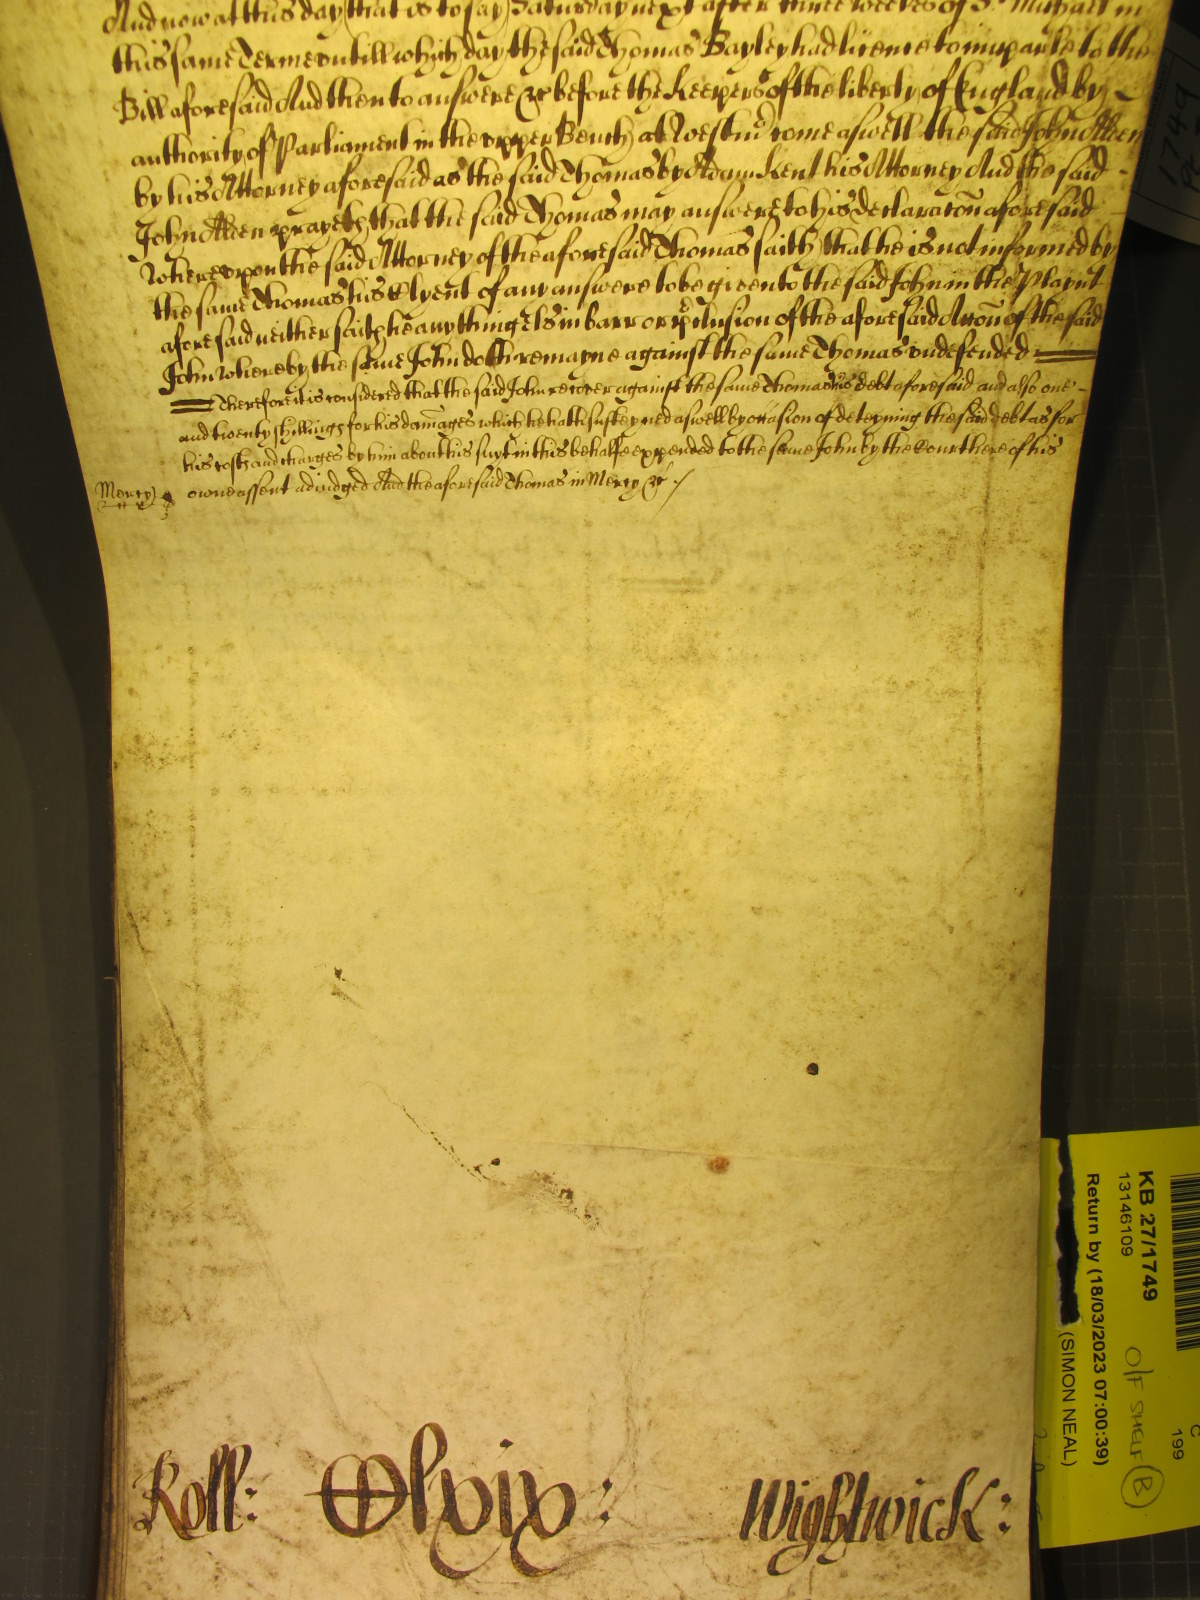 And now at this day (that is to say) Saturday next after three weekes of St Michael in
this same Terme untill which day the said Thomas Bayley had licence to imparle to the
Bill aforesaid And then to answere &c before the Keepers of the liberty of England by
authority of Parliament in the upper Bench at Westmr come aswell the said John Alden
by his Attorney aforesaid as the said Thomas by Adam Kent his Attorney And the said
John Alden prayeth that the said Thomas may answere to his declaracõn aforesaid
Whereupon the said Attorney of the aforesaid Thomas saith that he is not informed by
the same Thomas his Clyent of any answere to be given to the said John in the Playnt
aforesaid neither saith he any thing els in barr or p'clusion of the aforesaid Accõn of the said
John Whereby the same John doth remayne against the same Thomas undefended
Therefore it is considered that the said John recover against the same Thomas his debt aforesaid and also one
and twenty shillings for his damages which he hath susteyned aswell by occasion of deteyning the said debt as for
his costs and charges by him about his suyt in this behalfe expended to the same John by the Court here of his
owne assent adiudged And the aforesaid Thomas in Mercy &c ./
Mercy
Roll: Clxix:
Wightwick:
1749
KB 27/1749
13146109
Return by (18/03/2023 07:00:39)
(SIMON NEAL)
O/F SHELF B
C
199